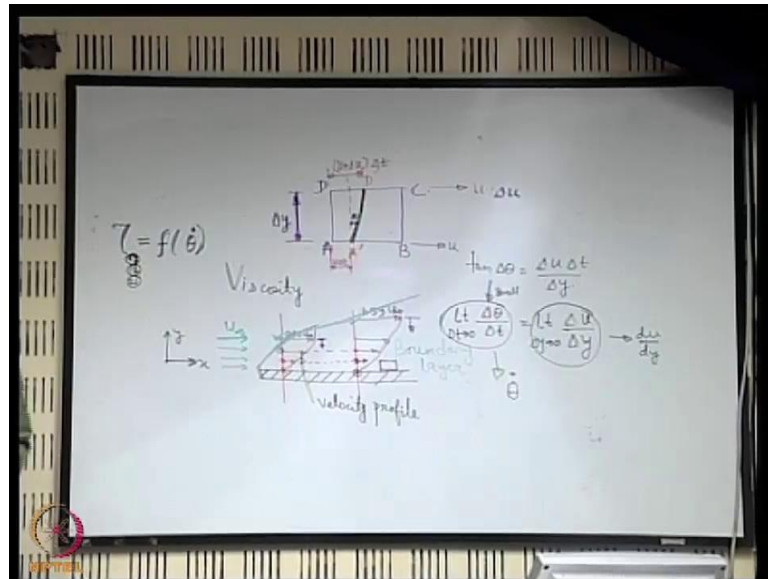 (u+Δu) Δt
D D' C → u+Δu
Δy
A A' B → u
τ = f(θ̇)
tan Δθ = Δu Δt / Δy
small
Viscosity
lt Δt→0 Δθ/Δt = lt Δy→0 Δu/Δy → du/dy
θ̇
y
x
U∞
Boundary
layer
velocity profile
NPTEL